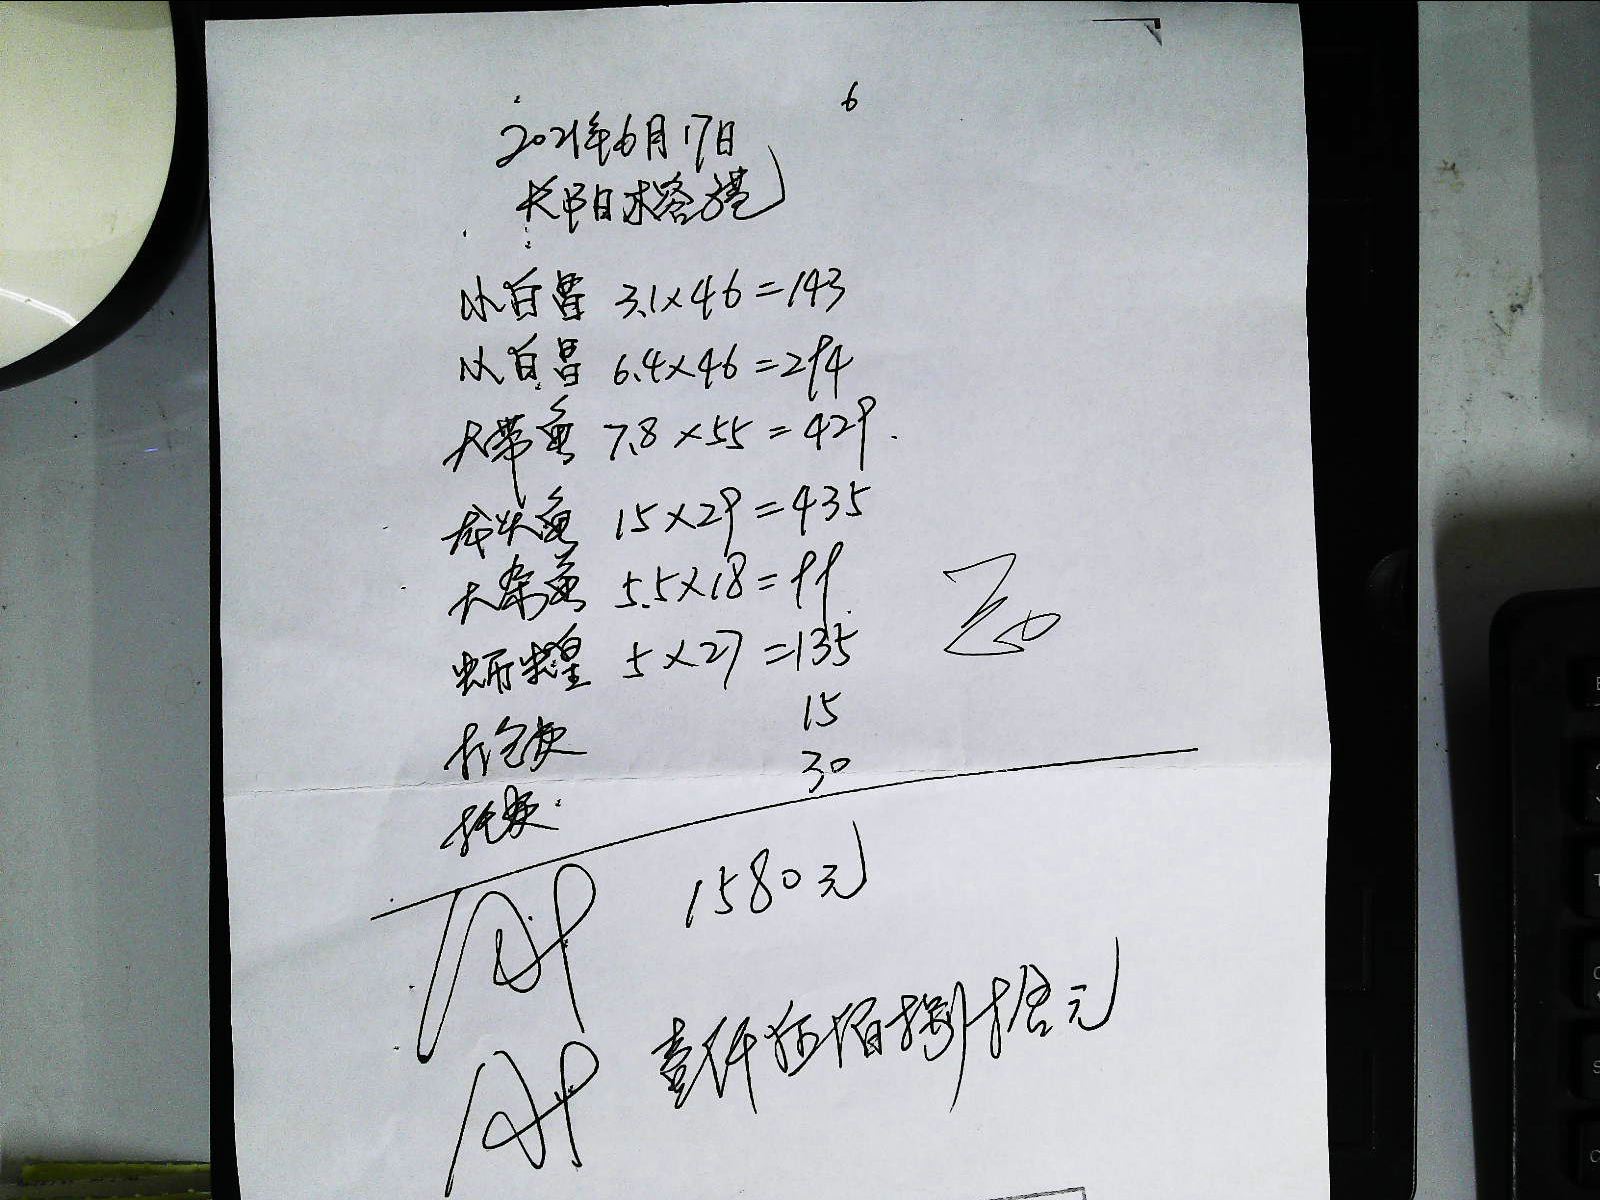 6
2021年6月17日
小白昌 3.1×46=143
小白昌 6.4×46=294
大带鱼 7.8×55=429.
龙头鱼 15×29=435
大杂鱼 5.5×18=99.
蚂蝗 5×27=135
打包费 15
托费. 30
1580元
壹仟伍佰捌拾元